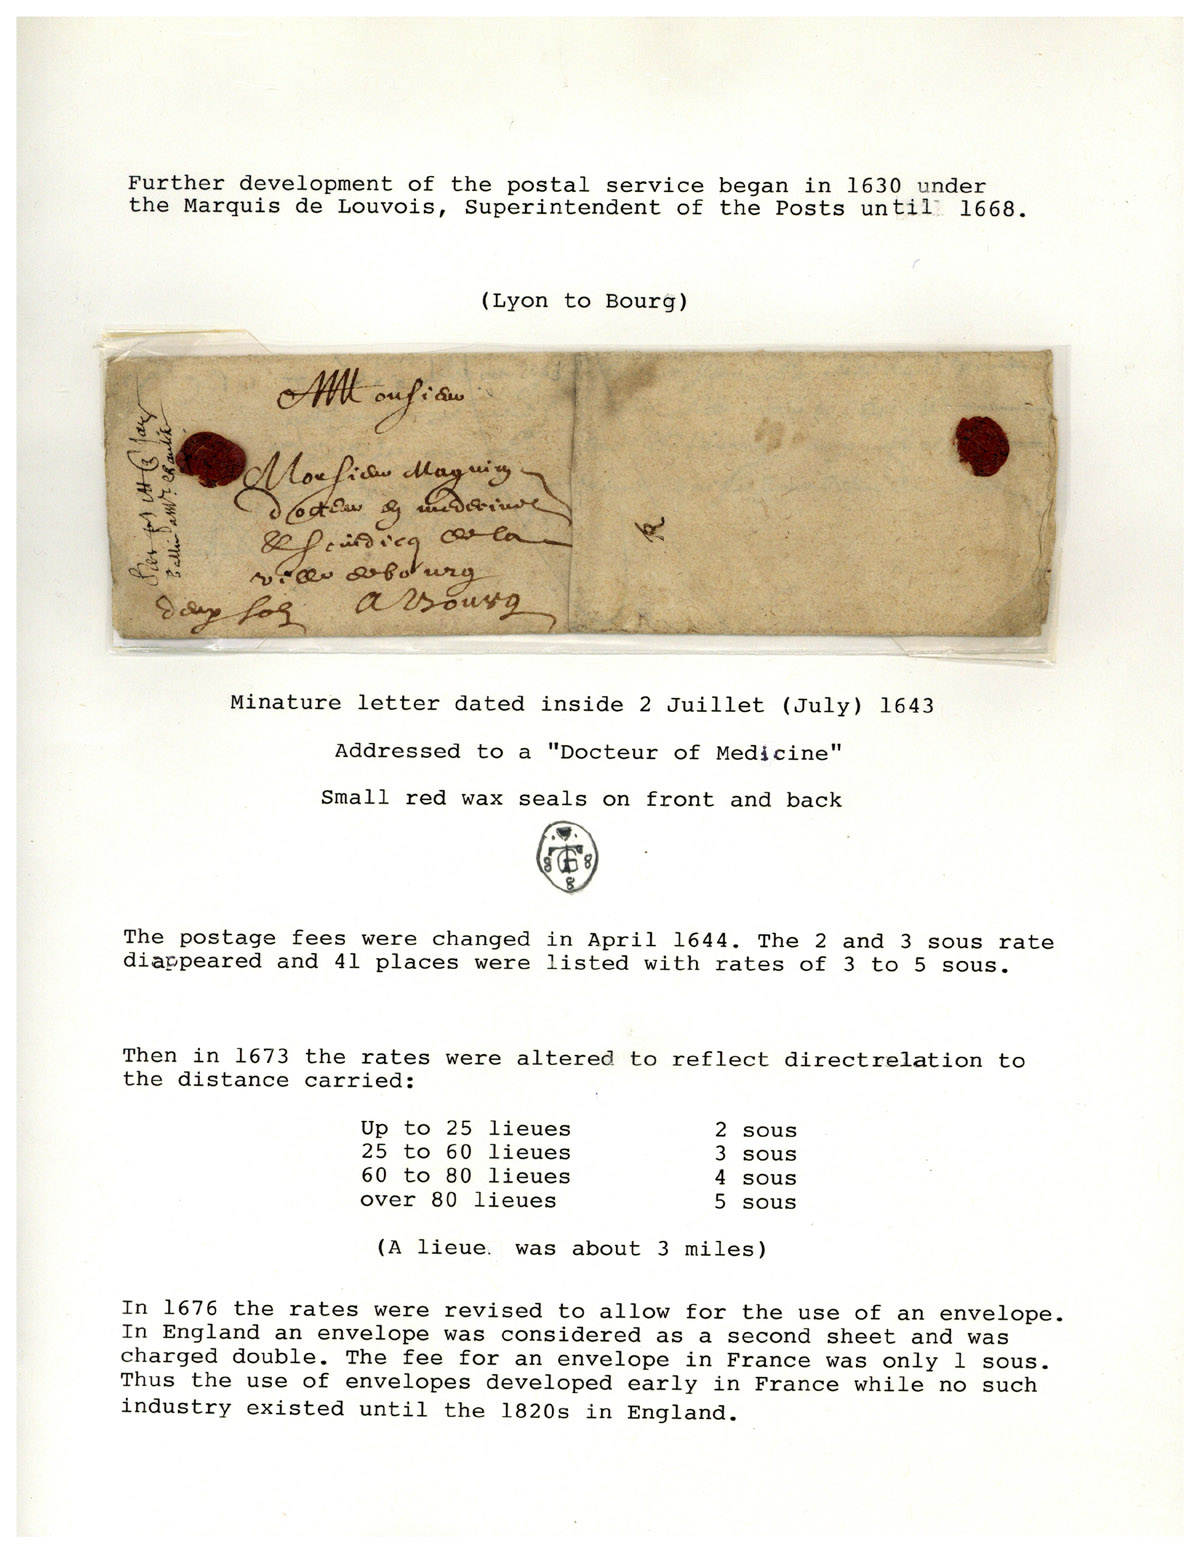 Further development of the postal service began in 1630 under
the Marquis de Louvois, Superintendent of the Posts until 1668.
(Lyon to Bourg)
Monsieur
Monsieur Maguin
docteur en medecine
& scindicq de la
ville de bourg
A Bourg
deux solz
Minature letter dated inside 2 Juillet (July) 1643
Addressed to a "Docteur of Medicine"
Small red wax seals on front and back
8 8
8
The postage fees were changed in April 1644. The 2 and 3 sous rate
diappeared and 41 places were listed with rates of 3 to 5 sous.
Then in 1673 the rates were altered to reflect directrelation to
the distance carried:
Up to 25 lieues 2 sous
25 to 60 lieues 3 sous
60 to 80 lieues 4 sous
over 80 lieues 5 sous
(A lieue. was about 3 miles)
In 1676 the rates were revised to allow for the use of an envelope.
In England an envelope was considered as a second sheet and was
charged double. The fee for an envelope in France was only 1 sous.
Thus the use of envelopes developed early in France while no such
industry existed until the 1820s in England.